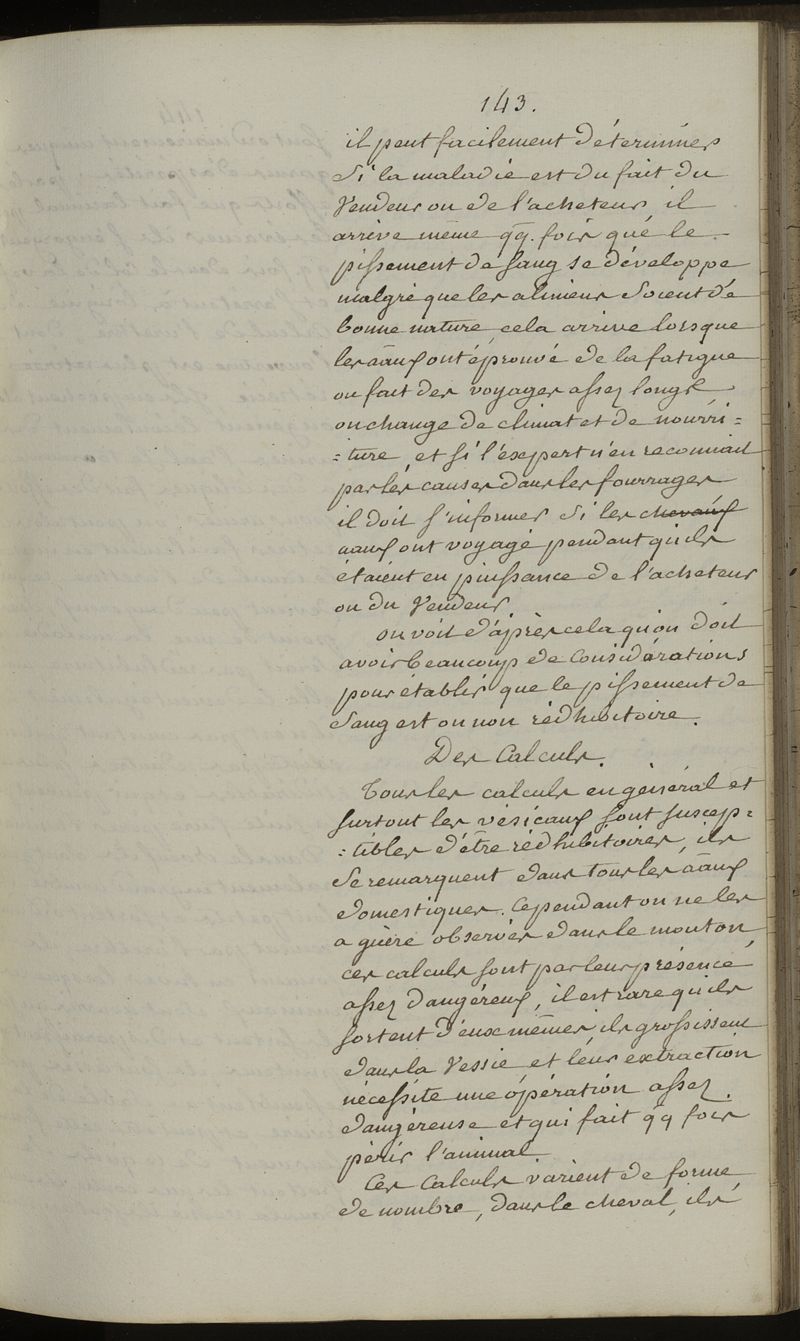 143.
il peut facilement déterminer
Si la maladie est du fait du
Vendeur ou de l'acheteur, il
arrive même qq. fois que le
pissement de sang se développe
malgré que les alimens Soient de
bonne nature, cela arrive lorsque
les aāux ont éprouvé de la fatigue
ou fait des voyages assez longs
on change de climat et de nourri=
=ture, et si l'éxpert n'en reconnait
pas les causes dans les fourrages
il doit s'informer Si les chevaux
aāux ont voyagé pendant qu'ils
étaient en puissance de l'acheteur
ou du Vendeur.
on voit d'après cela qu'on doit
avoir beaucoup de Considérations
pour établir que le pissement de
Sang est ou non rédhibitoire.
Des Calculs.
Tous les calculs en général et
surtout les vésicaux sont suscep=
=tibles d'être rédhibitoires, ils
Se remarquent dans tous les aāux
domestiques. Cependant on ne les
a guère observés dans le mouton,
ces calculs sont par leur présence
assez dangéreux, il est rare qu'ils
sortent d'eux mêmes, ils grossissent
dans la Vessie et leur extraction
nécessite une opération assez
dangéreuse et qui fait qq fois
périr l'animal
Ces Calculs varient de forme,
de nombre, dans le cheval, ils